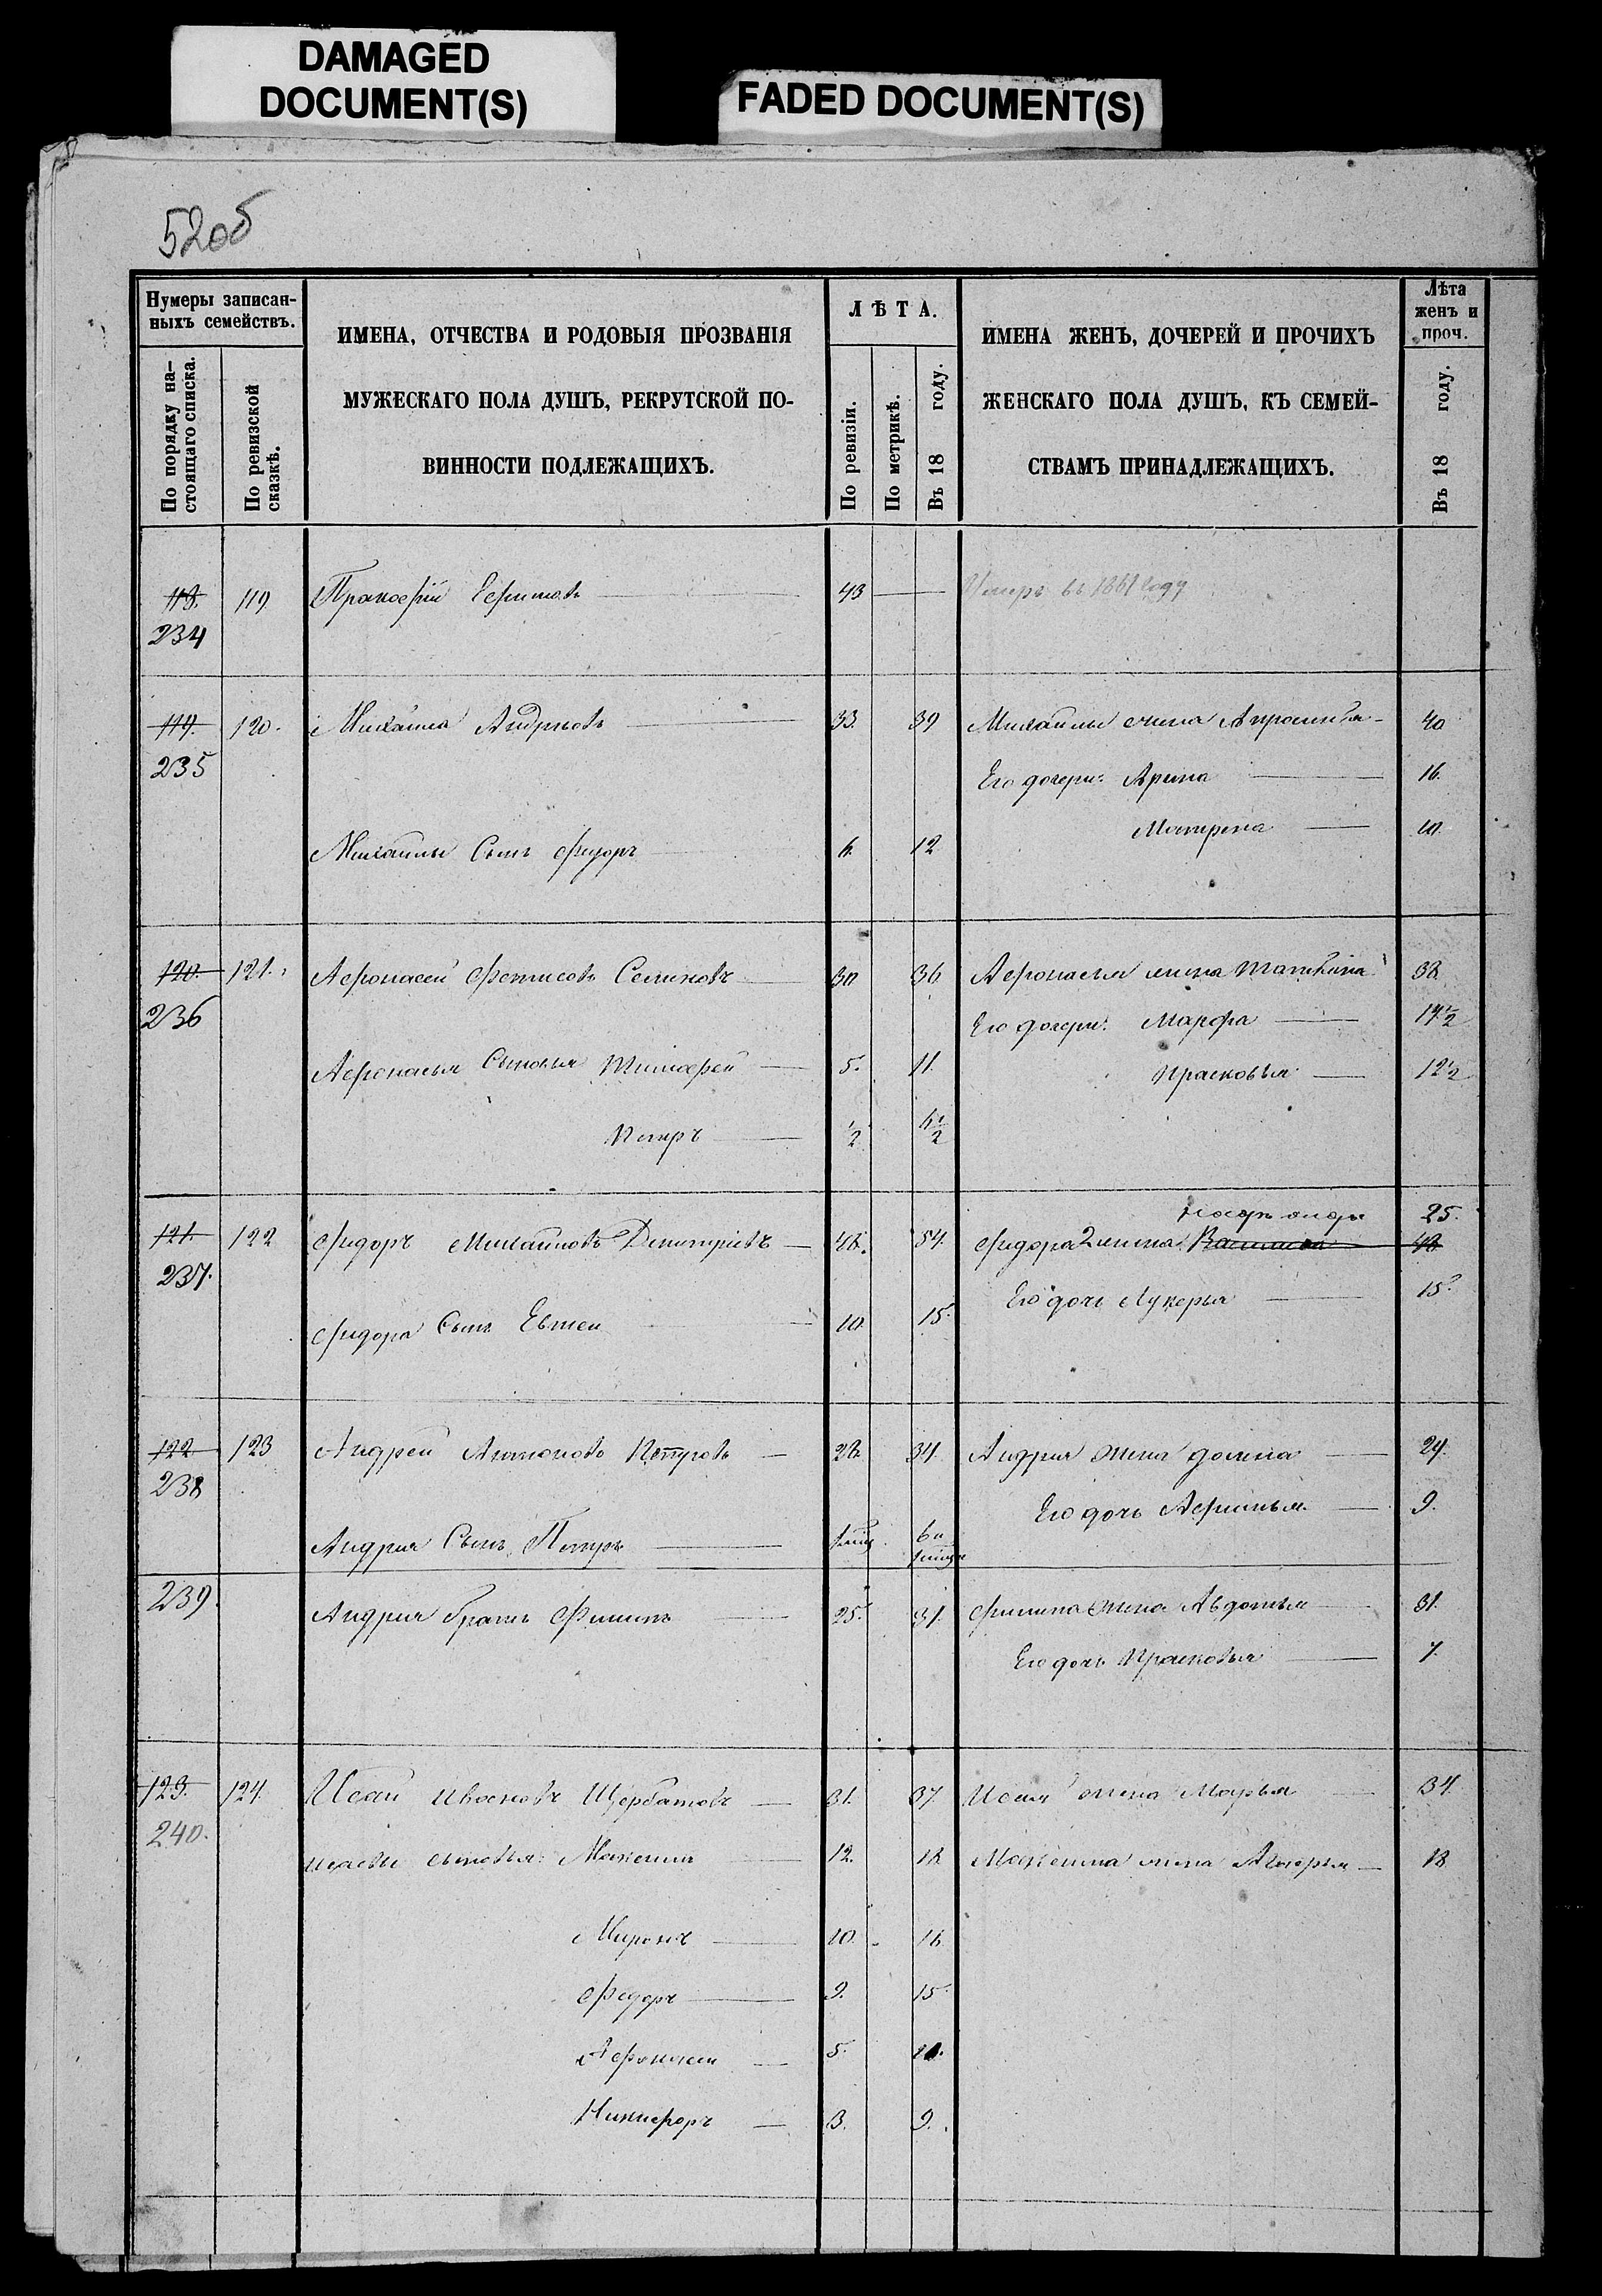 DAMAGED
DOCUMENT(S)
FADED DOCUMENT(S)
52об
Нумеры записан-
ныхъ семействъ.
По порядку на-
стоящаго списка.
По ревизской
сказкѣ.
ИМЕНА, ОТЧЕСТВА И РОДОВЫЯ ПРОЗВАНІЯ
МУЖЕСКАГО ПОЛА ДУШЪ, РЕКРУТСКОЙ ПО-
ВИННОСТИ ПОДЛЕЖАЩИХЪ.
ЛѢТА.
По ревизіи.
По метрикѣ.
Въ 18 году.
ИМЕНА ЖЕНЪ, ДОЧЕРЕЙ И ПРОЧИХЪ
ЖЕНСКАГО ПОЛА ДУШЪ, КЪ СЕМЕЙ-
СТВАМЪ ПРИНАДЛЕЖАЩИХЪ.
Лѣта
женъ и
проч.
Въ 18 году.
118. 119 Пракофій Ефимовъ 43 Умеръ въ 1861 году
234
119. 120. Михайла Андрѣевъ 33. 39 Михайлы жена 40
235
Его дочери: Арина 16.
Матрена 10.
Михайлы Сынъ Фидоръ 6. 12
120. 121. Афонасей Фетисовъ Семиновъ 30 36 Афонасья жена Татьяна 38
236
Его дочери: Марфа 17 1/2
Афонасья Сыновья Тимофей 5. 11.
Прасковья 12 1/2
Петръ 1/2 6 1/2
25.
121. 122 Фидоръ Михайловъ Димитріевъ 48. 54. Фидора 2 жена 48
237.
Его дочь Лукерья 15.
Фидора Сынъ Евтей 10. 15.
122 123 Андрей Антоновъ Петуровъ 28. 34. Андрея жена Домна 29.
238
Его дочь Афимья 9.
Андрея Сынъ Петръ
239. Андрея братъ Филипъ 25. 31. Филипа жена Авдотья 31.
Его дочь Прасковья 7.
123. 124. Исай Щербатовъ 31. 37 Исая жена Марья 34.
240.
Исаевы сыновья: Максимъ 12. 18 Максима жена 18
Миронъ 10. 16
Федоръ 9. 15
Афонасей 5.
Никифоръ 3. 9.